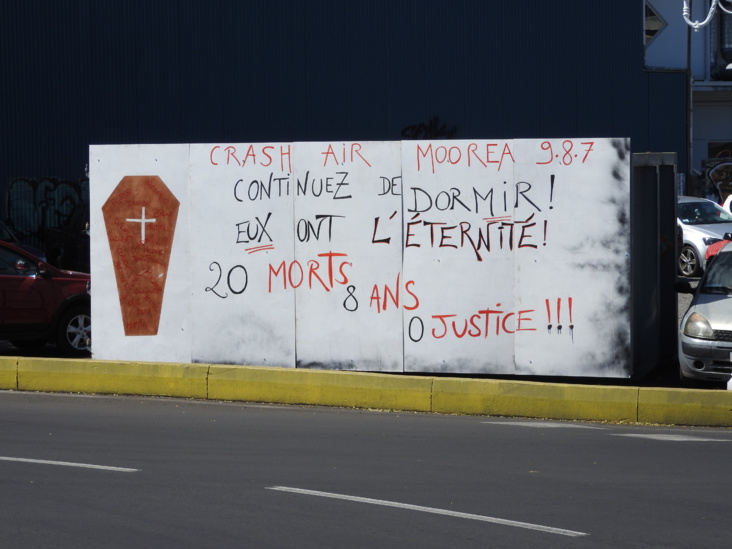 CRASH AIR MOOREA 9.8.7
CONTINUEZ DE DORMIR!
EUX ONT L'ÉTERNITÉ!
20 MORTS
8 ANS
0 JUSTICE !!!